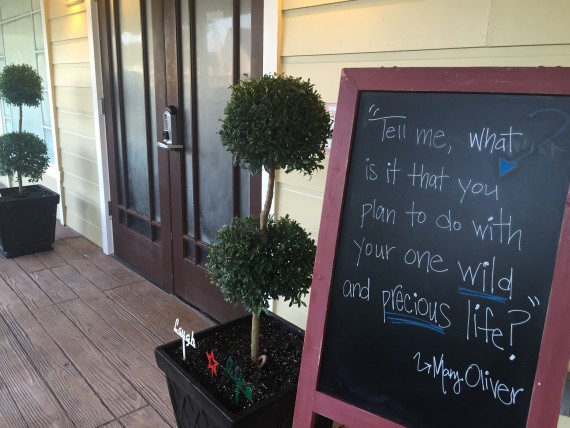 "Tell me, what
is it that you
plan to do with
your one wild
and precious life?"
Mary Oliver
Laugh